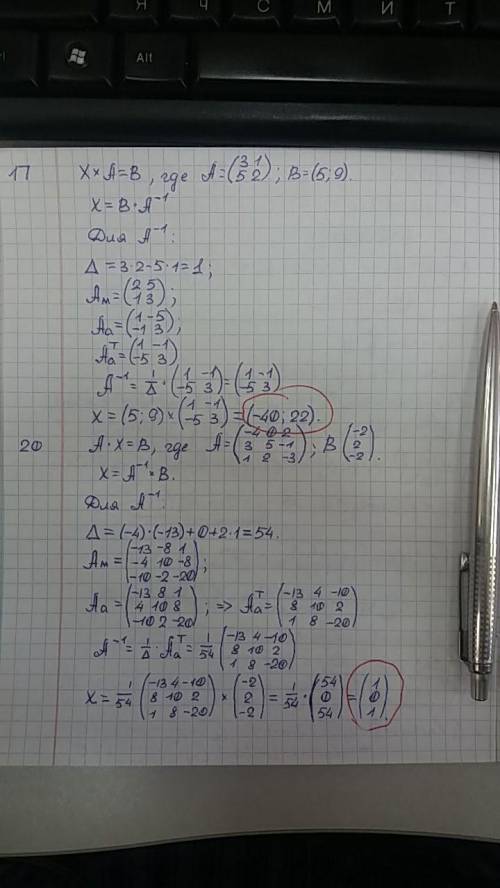 Я Ч С М И Т
Alt Alt
17 X×A=B, где A=(3 1; 5 2); B=(5; 9).
X=B·A⁻¹
Для A⁻¹:
Δ=3·2-5·1=1;
Aм=(2 5; 1 3);
Aa=(1 -5; -1 3);
Aaᵀ=(1 -1; -5 3)
A⁻¹=1/Δ·(1 -1; -5 3)=(1 -1; -5 3)
X=(5; 9)×(1 -1; -5 3)=(-40; 22).
20 A·X=B, где A=(-4 0 2; 3 5 -1; 1 2 -3); B(-2; 2; -2).
X=A⁻¹×B.
Для A⁻¹:
Δ=(-4)·(-13)+0+2·1=54.
Aм=(-13 -8 1; -4 10 -8; -10 -2 -20);
Aa=(-13 8 1; 4 10 8; -10 2 -20); => Aaᵀ=(-13 4 -10; 8 10 2; 1 8 -20)
A⁻¹=1/Δ·Aaᵀ=1/54(-13 4 -10; 8 10 2; 1 8 -20)
X=1/54(-13 4 -10; 8 10 2; 1 8 -20)×(-2; 2; -2)=1/54·(54; 0; 54)=(1; 0; 1).